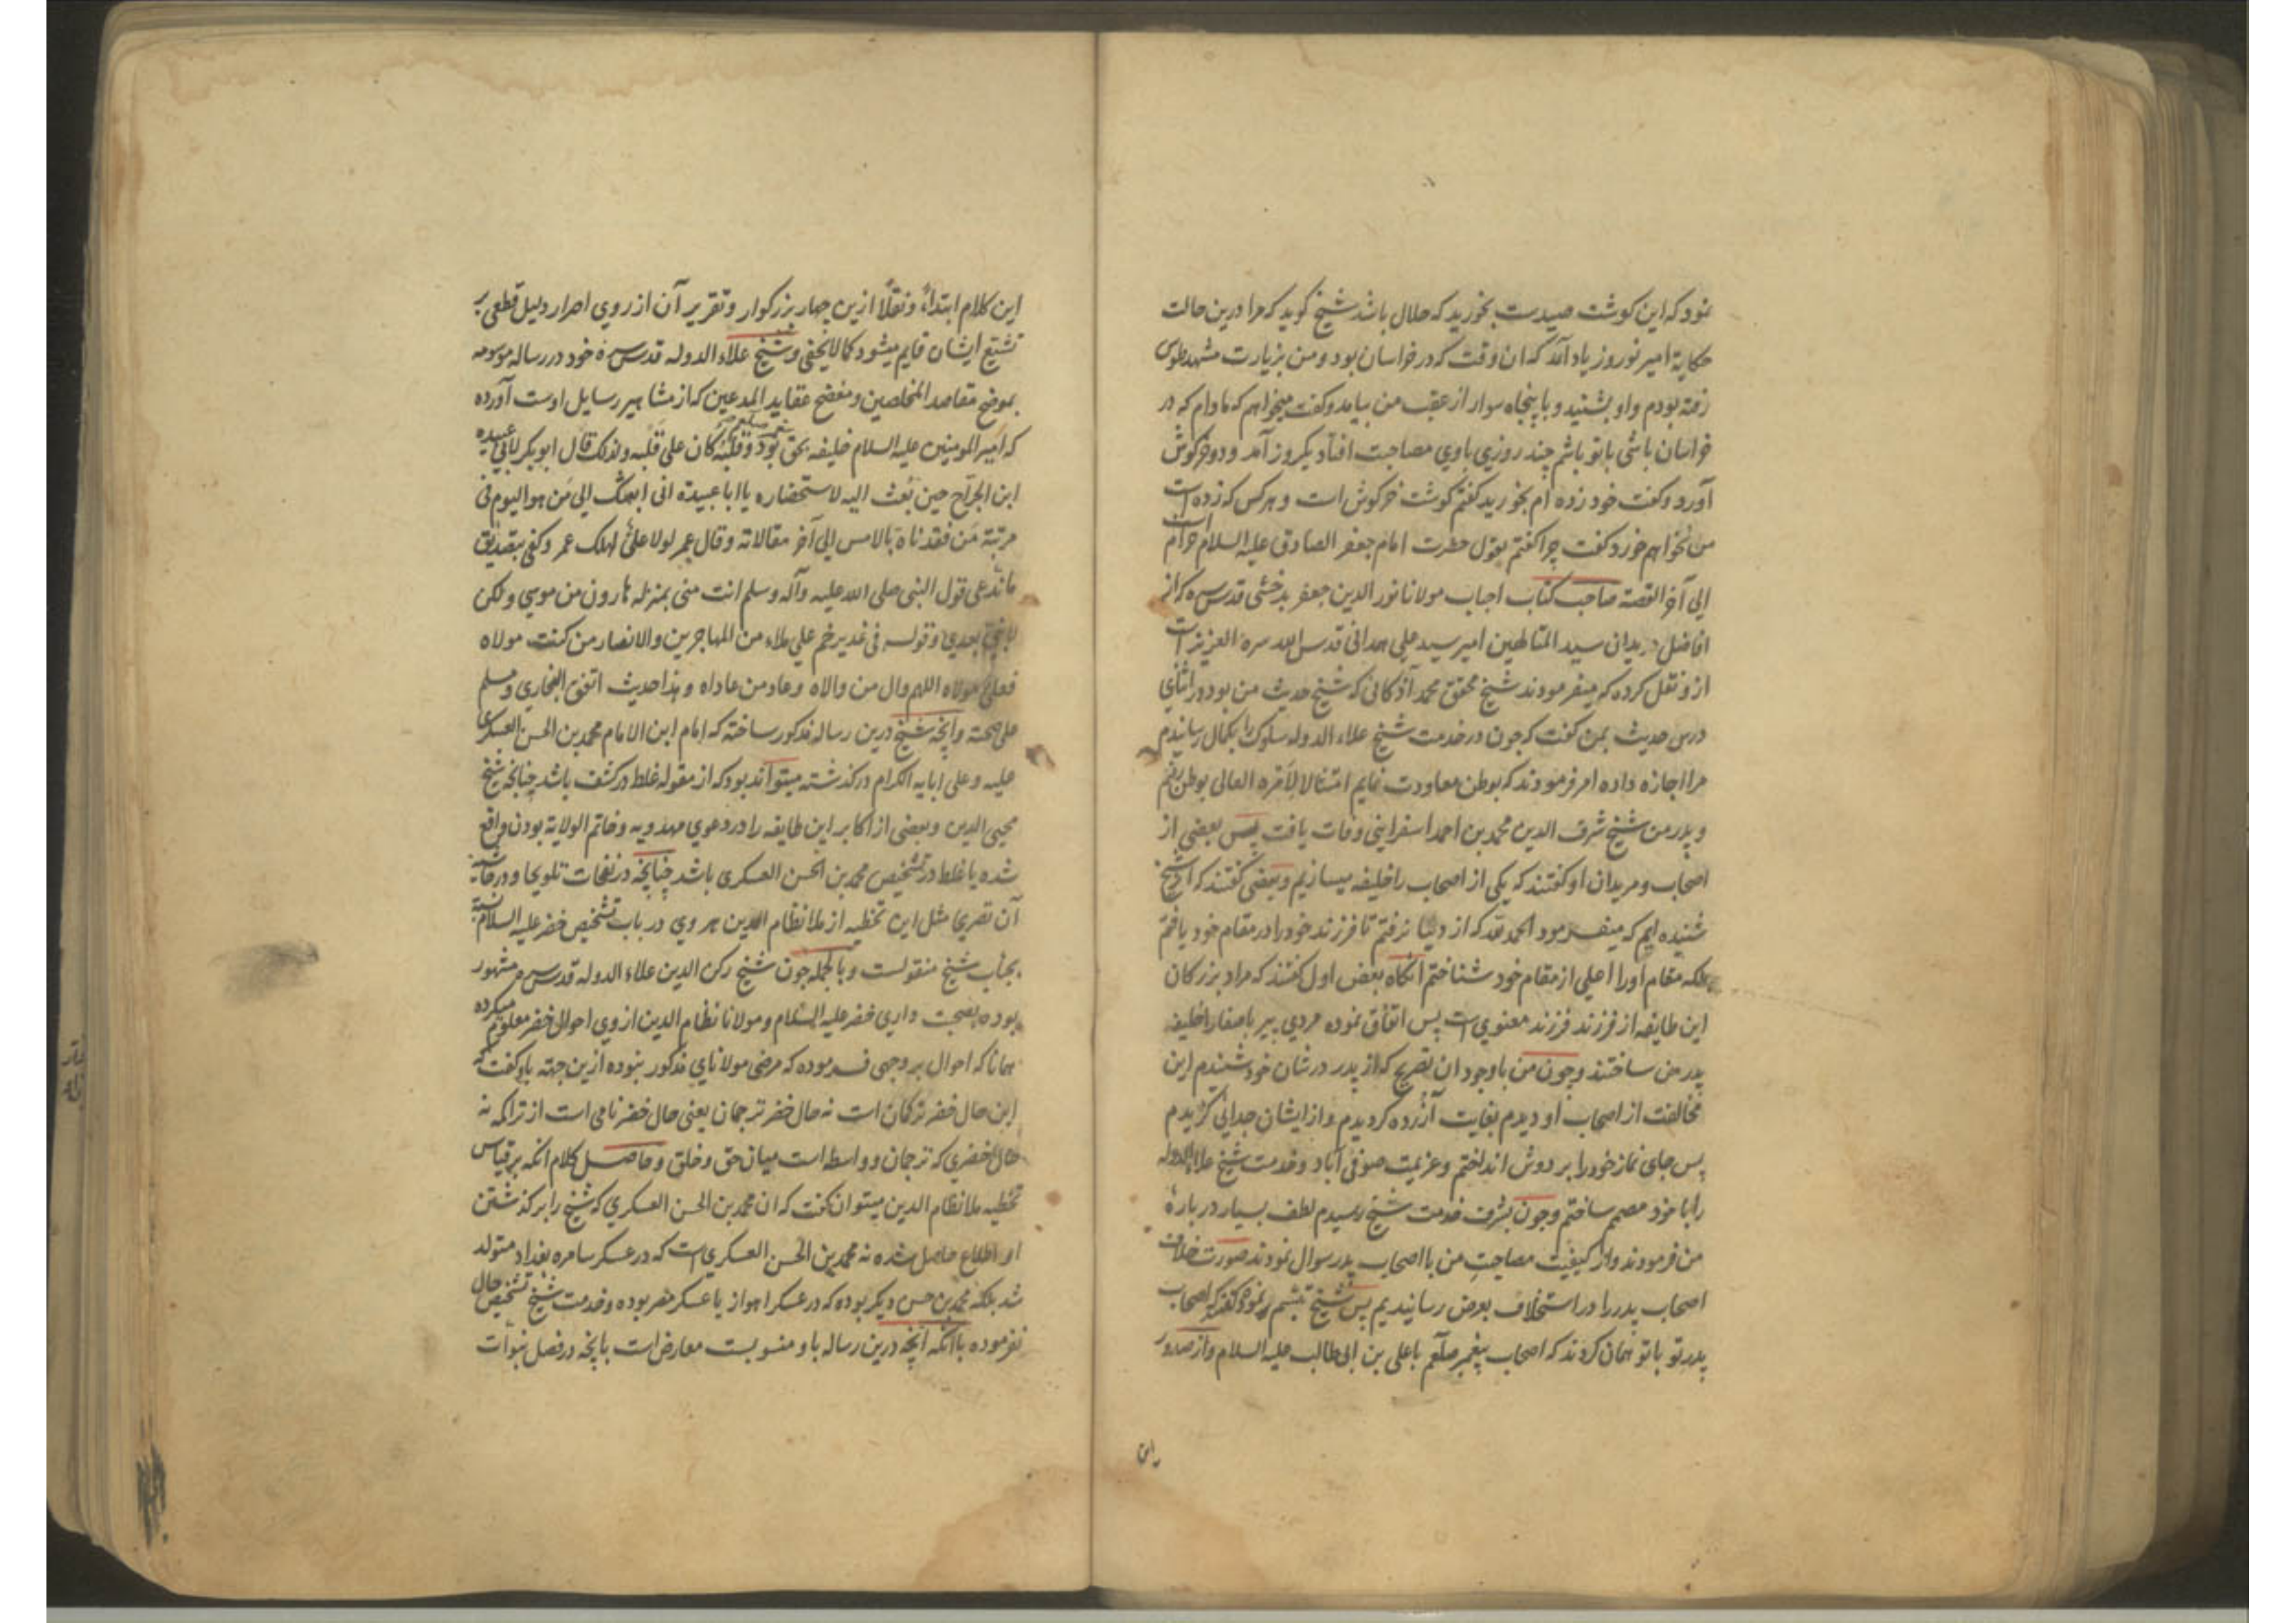 نمود که این کوشت صیدست بخورید که حلال باشد شیخ کوید که مرا درین حالت
حکایة امیر نوروز یاد آمد که ان وقت که در خراسان بود و من بزیارت مشهد طوس
رفته بودم و او بشنید و با پنجاه سوار از عقب من بیامد و کفت میخواهم که مادام که در
خراسان باشی با تو باشم چند روزی با وی مصاحبت افتاد یکروز آمد و دو خرکوش
آورد و کفت خود زده ام بخورید کفتم کوشت خرکوش است و هر کس که زده است
من نخواهم خورد کفت چرا کفتم بقول حضرت امام جعفر الصادق علیه السلام حرام است
الی آخر القصة صاحب کتاب احباب مولانا نور الدین جعفر بدخشی قدس سره که از
افاضل مریدان سید المتالهین امیر سید علی همدانی قدس الله سره العزیز است
ازو نقل کرده که میفرمودند شیخ محقق محمد آذکانی که شیخ حدیث من بود در اثنای
درس حدیث بمن کفت که چون در خدمت شیخ علاء الدوله سلوک را بکمال رسانیدم
مرا اجازه داده امر فرمودند که بوطن معاودت نمایم امتثالا لامره العالی بوطن رفتم
و پدر من شیخ شرف الدین محمد بن احمد اسفراینی وفات یافت پس بعضی از
اصحاب و مریدان او کفتند که یکی از اصحاب را خلیفه میسازیم و بعضی کفتند که از شیخ
شنیده ایم که میفرمود الحمد لله که از دنیا نرفتم تا فرزند خود را در مقام خود یافتم
بلکه مقام او را اعلی از مقام خود شناختم آنکاه بعض اول کفتند که مراد بزرکان
این طایفه از فرزند فرزند معنوی است پس اتفاق نموده مردی پیر باصفا را خلیفه
پدر من ساختند و چون من با وجود ان تصریح که از پدر در شان خود شنیدم این
مخالفت از اصحاب او دیدم بغایت آزرده کردیدم و از ایشان جدایی کزیدم
پس جای نماز خود را بر دوش انداختم و عزیمت صوفی آباد و خدمت شیخ علاء الدوله
را با خود مصمم ساختم و چون بشرف خدمت شیخ رسیدم لطف بسیار در باره
من فرمودند و از کیفیت مصاحبت من با اصحاب پدر سوال نمودند صورت خلاف
اصحاب پدر را در استخلاف بعرض رسانیدیم پس شیخ تبسم نموده کفتند که اصحاب
پدر تو با تو همان کردند که اصحاب پیغمبر صلعم با علی بن ابی طالب علیه السلام و از صدور
این کلام ابتداءً و نقلًا ازین چهار بزرکوار و تقریر آن از روی اصرار دلیل قطعی بر
تشیع ایشان قایم میشود کما لا یخفی و شیخ علاء الدوله قدس سره خود در رساله موسومه
بموضح مقاصد المخلصین و مفضح عقاید المدعین که از مشاهیر رسایل اوست آورده
که امیر المومنین علیه السلام خلیفه بحق بود و قلبه کان علی قلبه و لذلک قال ابو بکر لابی عبیده
ابن الجراح حین بعث الیه لاستحضاره یا ابا عبیدة انی ابعثک الی من هو الیوم فی
مرتبة من فقدناه بالامس الی آخر مقالاته و قال عمر لولا علیٌ لهلک عمر و کفی بتصدیق
قول النبی صلی الله علیه و آله و سلم انت منی بمنزله هارون من موسی و لکن
لا نبی بعدی و قوله فی غدیر خم علی ملاء من المهاجرین و الانصار من کنت مولاه
فعلی مولاه اللهم وال من والاه و عاد من عاداه و هذا حدیث اتفق البخاری و مسلم
علی صحته و آنچه شیخ درین رساله مذکور ساخته که امام ابن الامام محمد بن الحسن العسکری
علیه و علی ابایه الکرام درکذشته میتواند بود که از مقوله غلط در کشف باشد چنانچه شیخ
محیی الدین و بعضی از اکابر این طایفه را در دعوی مهدویه و خاتم الولایة بودن واقع
شده یا غلط در تشخیص محمد بن الحسن العسکری باشد چنانچه در نفحات تلویحا و در حاشیه
آن تصریحا مثل این تخطیه از ملا نظام الدین هروی در باب تشخیص خضر علیه السلام نسبة
بجناب شیخ منقولست و بالجمله چون شیخ رکن الدین علاء الدوله قدس سره مشهور
بوده بصحبت داری خضر علیه السلام و مولانا نظام الدین از وی احوال خضر معلوم میکرده
همانا که احوال بر وجهی فرموده که مرضی مولانای مذکور نبوده ازین جهته باو کفت که
این حال خضر ترکمان است نه حال خضر ترجمان یعنی حال خضر نامی است از تراکمه نه
حال خضری که ترجمان و واسطه است میان حق و خلق و حاصل کلام آنکه بر قیاس
تخطیه ملا نظام الدین میتوان کفت که ان محمد بن الحسن العسکری که شیخ را بر کذشتن
او اطلاع حاصل شده نه محمد بن الحسن العسکری است که در عسکر سامره بغداد متولد
شد بلکه محمد بن حسن دیکر بوده که در عسکر اهواز یا عسکر مصر بوده و خدمت شیخ تشخیص حال
نفرموده با آنکه آنچه درین رساله باو منسوبست معارض است بآنچه در فصل نبوات